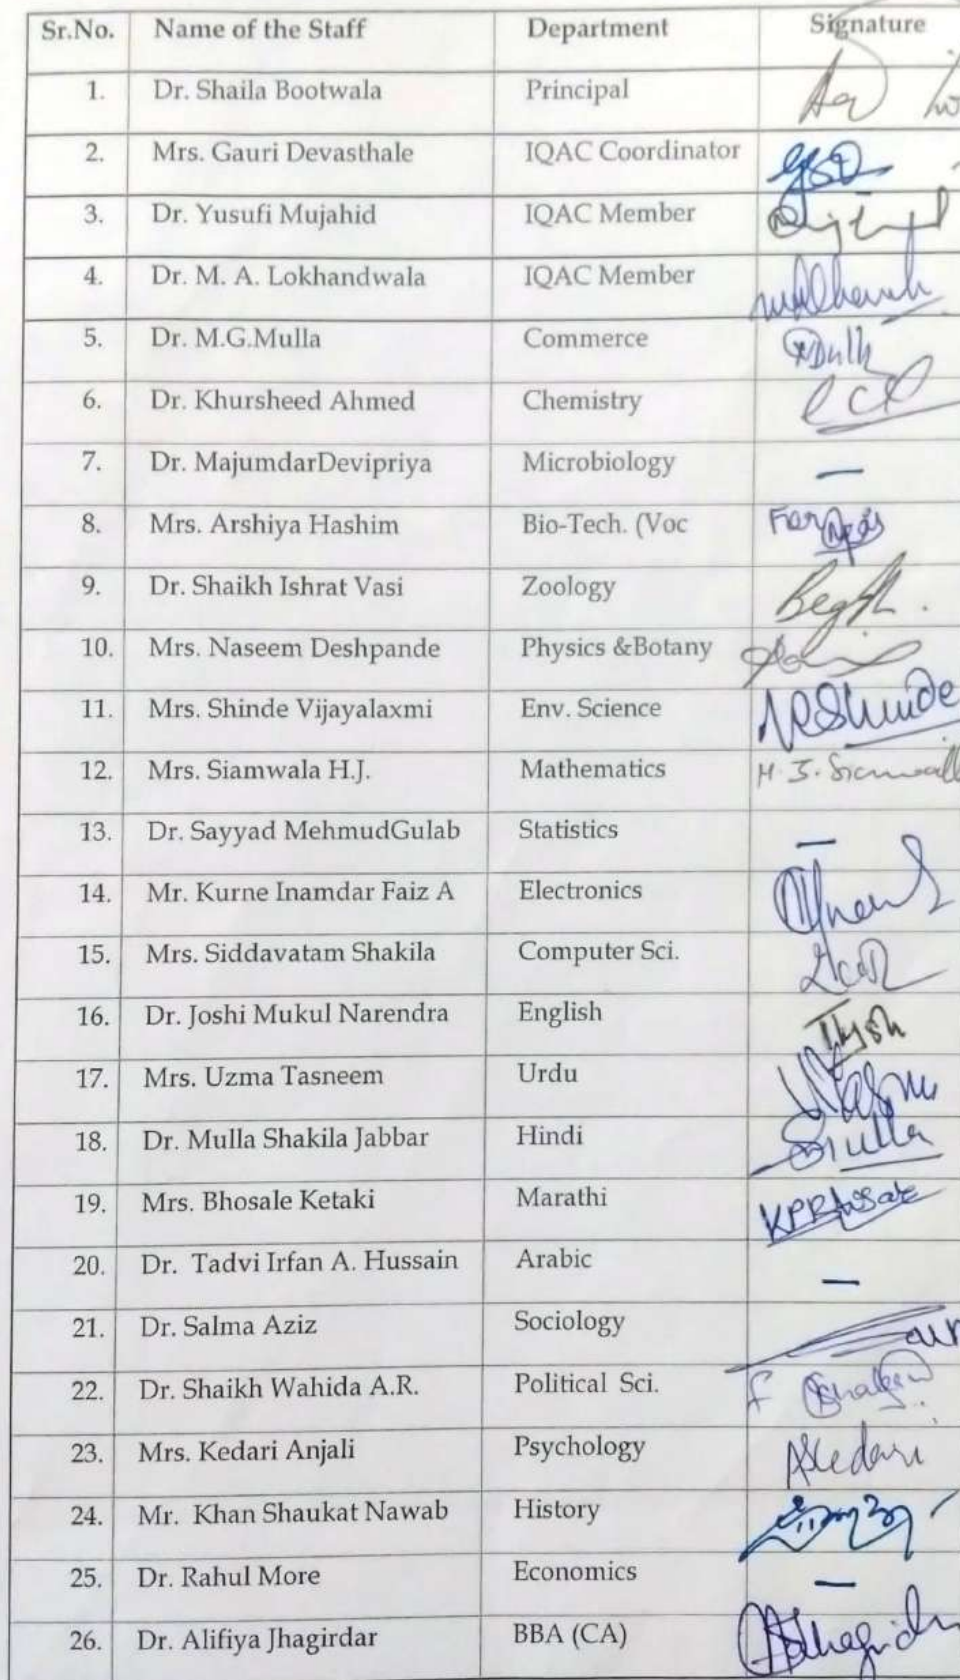 Sr.No. Name of the Staff Department Signature
1. Dr. Shaila Bootwala Principal
2. Mrs. Gauri Devasthale IQAC Coordinator
3. Dr. Yusufi Mujahid IQAC Member
4. Dr. M. A. Lokhandwala IQAC Member
5. Dr. M.G.Mulla Commerce
6. Dr. Khursheed Ahmed Chemistry
7. Dr. MajumdarDevipriya Microbiology —
8. Mrs. Arshiya Hashim Bio-Tech. (Voc For
9. Dr. Shaikh Ishrat Vasi Zoology
10. Mrs. Naseem Deshpande Physics &Botany
11. Mrs. Shinde Vijayalaxmi Env. Science
12. Mrs. Siamwala H.J. Mathematics
13. Dr. Sayyad MehmudGulab Statistics —
14. Mr. Kurne Inamdar Faiz A Electronics
15. Mrs. Siddavatam Shakila Computer Sci.
16. Dr. Joshi Mukul Narendra English
17. Mrs. Uzma Tasneem Urdu
18. Dr. Mulla Shakila Jabbar Hindi
19. Mrs. Bhosale Ketaki Marathi
20. Dr. Tadvi Irfan A. Hussain Arabic —
21. Dr. Salma Aziz Sociology
22. Dr. Shaikh Wahida A.R. Political Sci.
23. Mrs. Kedari Anjali Psychology AKedari
24. Mr. Khan Shaukat Nawab History
25. Dr. Rahul More Economics —
26. Dr. Alifiya Jhagirdar BBA (CA)